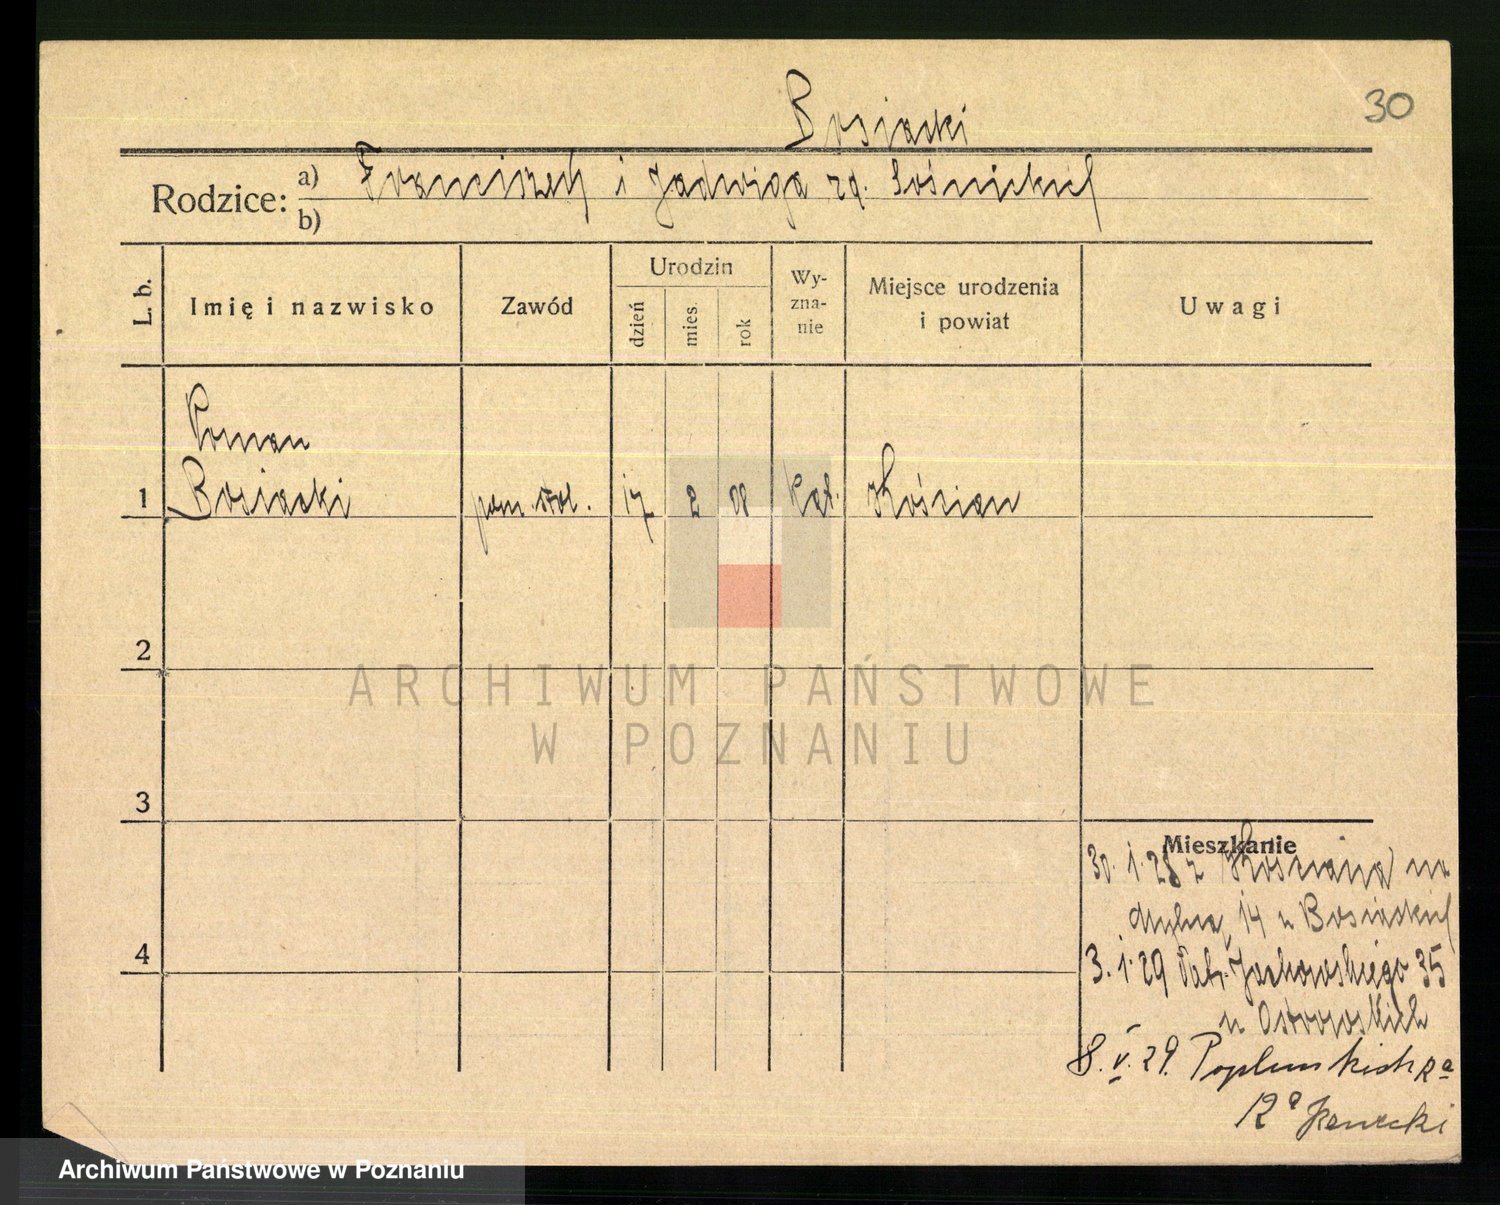 30
Bosiacki
Rodzice: a) Franciszek i Jadwiga zd. Sośnickich
b)
L. b.
Imię i nazwisko
Zawód
Urodzin
dzień
mies.
rok
Wy-
zna-
nie
Miejsce urodzenia
i powiat
Uwagi
Roman
1 Bosiacki pom. stol. 17 2 08 kat. Kościan
2
ARCHIWUM PAŃSTWOWE
W POZNANIU
3
Mieszkanie
30. 1. 28 z Kościana na
14 u Bosiackich
4
3. 1. 29 Jackowskiego 35
u Ostrowskich
8. V. 29.
Archiwum Państwowe w Poznaniu